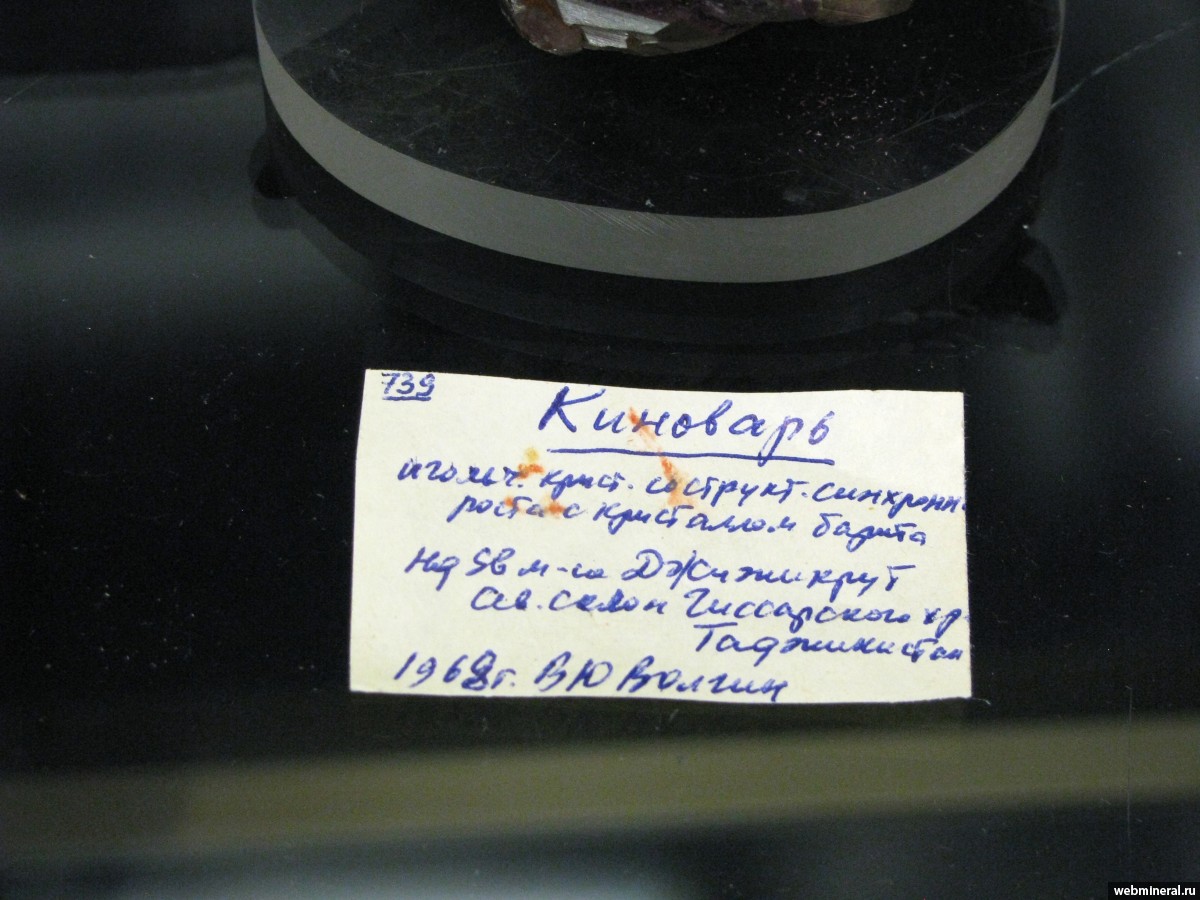 739
Киноварь
игольч. крист. со структ. синхронн.
роста с кристаллом барита
м-ие Джижикрут
склон Гиссарского хр.
Таджикистан
1968г. ВЮ Волгин
webmineral.ru